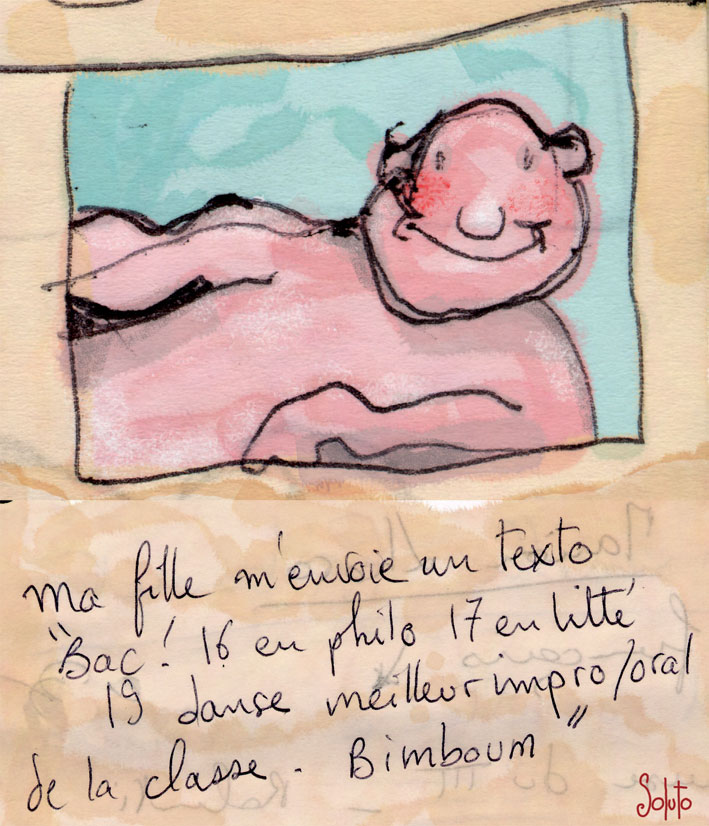 Ma fille m'envoie un texto
"Bac! 16 en philo 17 en litté
19 danse meilleur impro/oral
de la classe. Bimboum"
Soluto